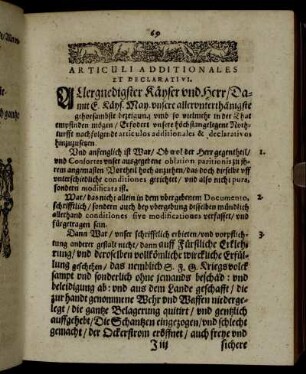 69
ARTICULI ADDITIONALES
ET DECLARATIVI.
Allergnedigster Käyser vnd Herr/Da-
mit E. Käys. May. vnsere allervnterthänigste
gehorsambste bezeigung vmb so vielmehr in der That
empfinden mögen/Erfodert vnsere höchstangelegene Not-
turfft nachfolgende articulos additionales & declarativos
hinzuzusetzen
Vnd anfenglich ist War/Ob wol der Herr gegentheil/ 1.
vnd Consorten vnser ausgegebene oblation paritionis zu ih-
rem angemasten Vortheil hoch anziehen/das doch dieselbe vff
vnterschiedliche conditiones gerichtet/vnd also nicht pura,
sondern modificata ist.
War/das nicht allein in dem vbergebenem Documento, 2.
schrifftlich/sondern auch bey vbergebung desselben mündlich
allerhand conditiones sive modificationes verfasset/vnd
fürgetragen sein.
Dann War/vnser schrifftlich erbieten/vnd verpflich- 3.
tung anderer gestalt nicht/dann auff Fürstliche Erkleh-
rung/vnd derselben vollkömliche würckliche Erfül-
lung geschehen/das nemblich S. F. G. Kriegsvolck
sampt vnd sonderlich ohne jemands beschäd: vnd
beleidigung ab: vnd aus dem Lande geschafft/die
zur hand genommene Wehr vnd Waffen niederge-
legt/die gantze Belagerung quitirt/vnd gentzlich
auffgehebt/Die Schantzen eingezogen/vnd schlecht
gemacht/der Ockerstrom eröffnet/auch freye vnd
J iij sichere